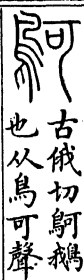 鴚
古俄切鴚鵝
也从鳥可聲